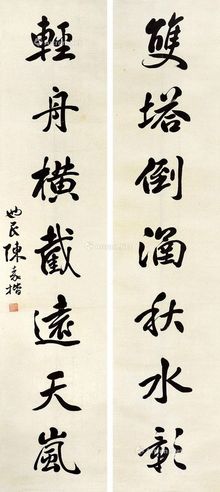 雙塔倒涵秋水影
輕舟橫截遠天嵐
陳家楷